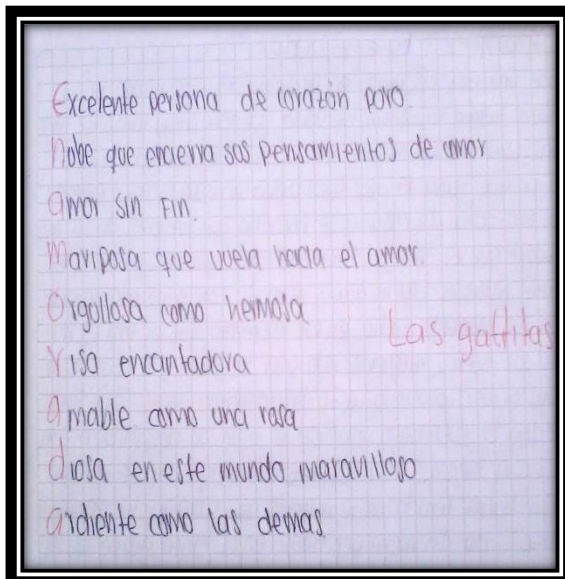 Excelente persona de corazón puro
nube que encierra sus pensamientos de amor
amor sin fin.
mariposa que vuela hacia el amor
Orgullosa como hermosa
risa encantadora
amable como una rosa
diosa en este mundo maravilloso
ardiente como las demas
Las gattitas